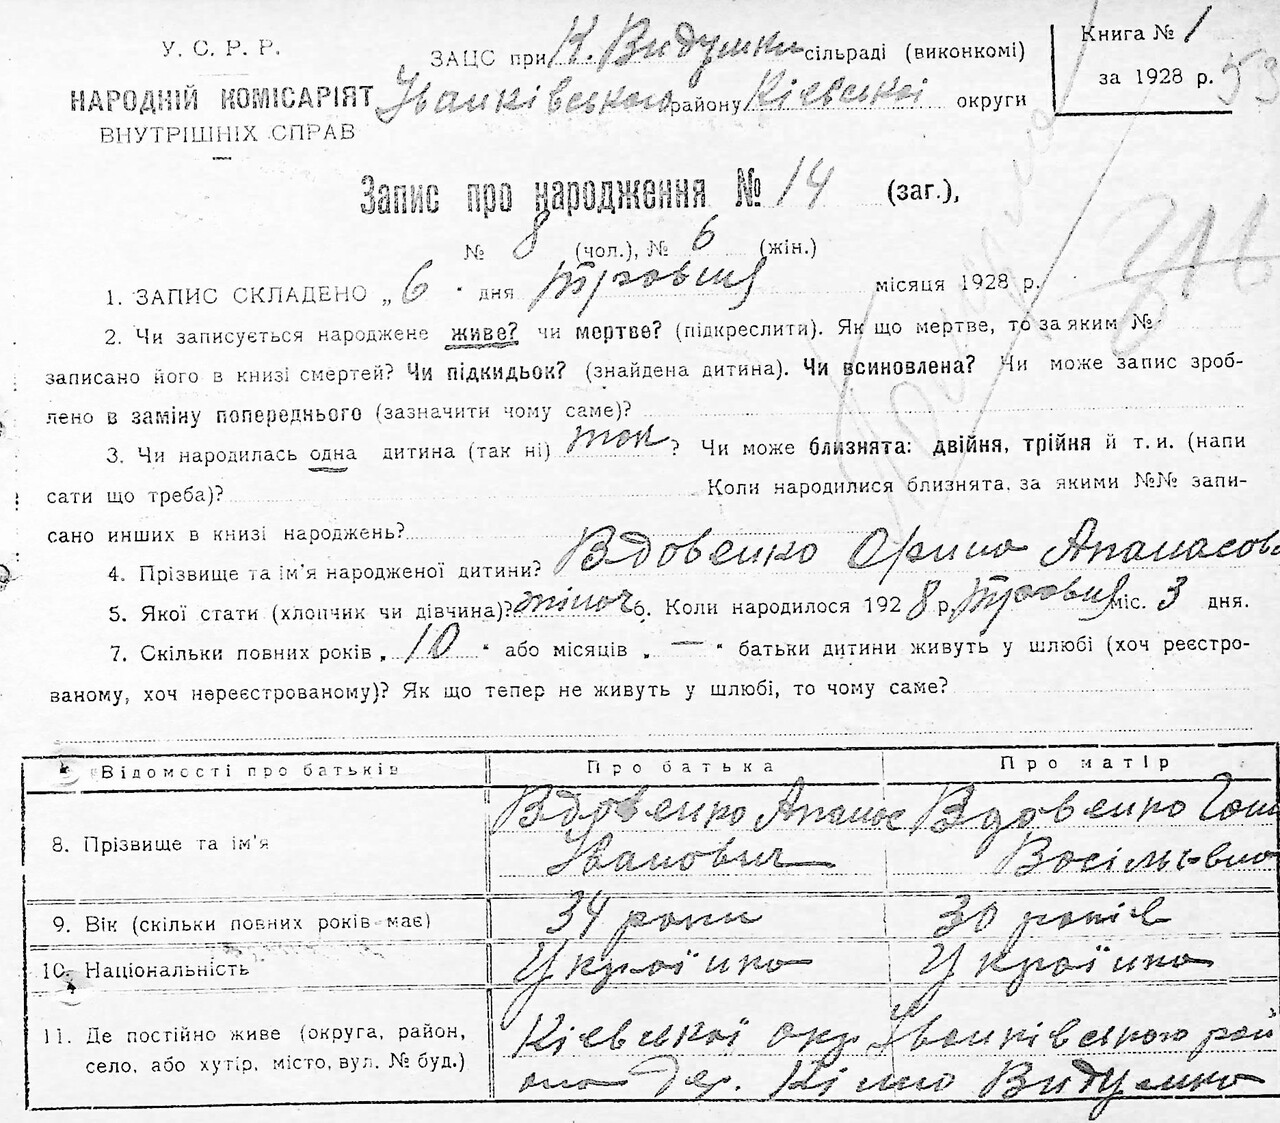 У. С. Р. Р.
НАРОДНІЙ КОМІСАРІЯТ
ВНУТРІШНІХ СПРАВ
ЗАЦС при К. Видумки сільраді (виконкомі)
Іванківського району Кіевської округи
Книга № 1
за 1928 р.
53
Запис про народження № 14 (заг.),
№ 8 (чол.), № 6 (жін.)
1. ЗАПИС СКЛАДЕНО „6" дня травня місяця 1928 р.
2. Чи записується народжене живе? чи мертве? (підкреслити). Як що мертве, то за яким №
записано його в книзі смертей? Чи підкидьок? (знайдена дитина). Чи всиновлена? Чи може запис зроб-
лено в заміну попереднього (зазначити чому саме)?
3. Чи народилась одна дитина (так ні) так? Чи може близнята: двійня, трійня й т. и. (напи
сати що треба)? Коли народилися близнята, за якими №№ запи-
сано инших в книзі народжень?
4. Прізвище та ім'я народженої дитини? Вдовенко Орина Апанасов
5. Якої стати (хлопчик чи дівчина)? жіноч 6. Коли народилося 1928 р. Травня міс. 3 дня.
7. Скільки повних років „10" або місяців „—" батьки дитини живуть у шлюбі (хоч реєстро-
ваному, хоч нереєстрованому)? Як що тепер не живуть у шлюбі, то чому саме?
Відомості про батьків Про батька Про матір
8. Прізвище та ім'я Вдовенко Апанас Іванович Вдовенко Васільевна
9. Вік (скільки повних років має) 34 роки 30 років
10. Національність Українка Україн­ка
11. Де постійно живе (округа, район, Кіевської окр Іванківського рай
село, або хутір, місто, вул. № буд.) она дер. Видумка